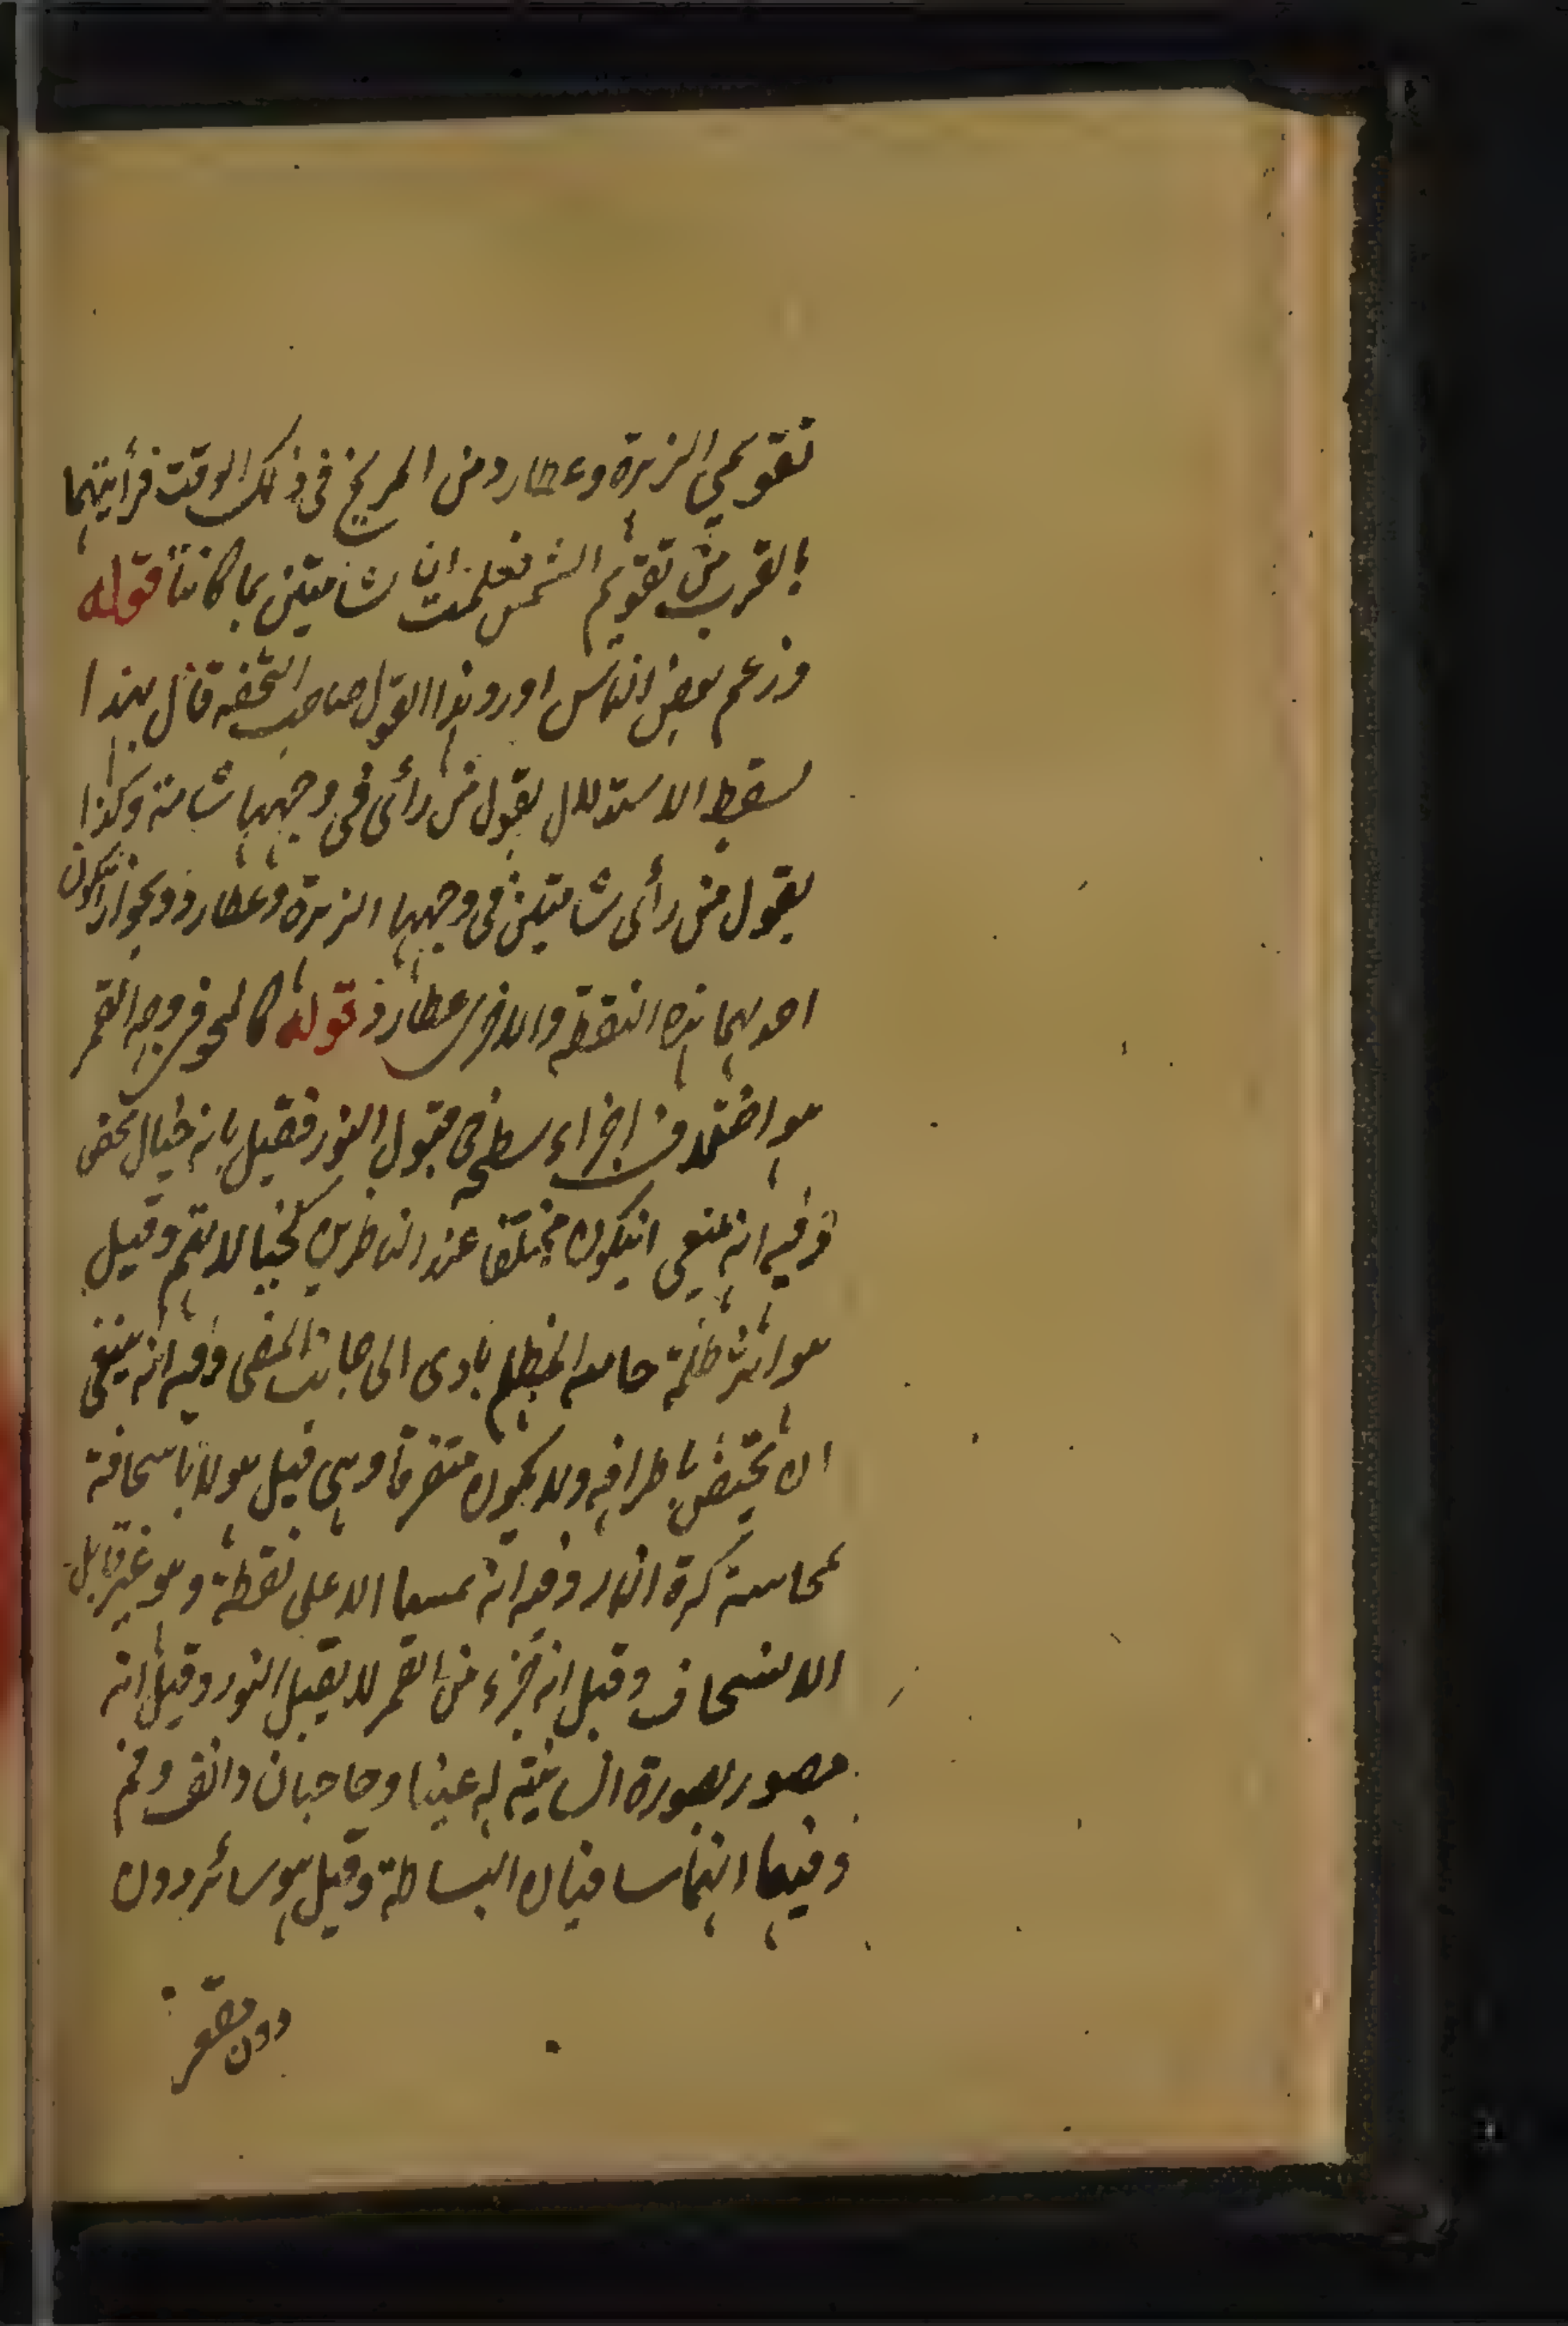 تقويمي الزهرة وعطارد من المريخ في ذلك الوقت فرأيتهما
بالقرب من تقويم الشمس فعلمت ان شامتين هما كانتا قوله
وزعم بعض الناس اورد هذا القول صاحب التحفه قال بهذا
سقط الاستدلال بقول من رأى في وجهها شامة وكذا
بقول من رأى شامتين في وجهها الزهرة وعطارد ويجوز ان يكون
احديهما هذه النقطة والاخرى عطارد قوله كالمحو في وجه القمر
هو اختلاف اجزاء سطحه في قبول النور فقيل بانه خيال محض
وفيه انه ينبغي ان يكون مختلفا عند الناظرين كخيالاتهم وقيل
هو اثر ظلمة المظلم بادى الى جانب المضى وفيه انه ينبغي
ان يختص باطرافه ولا يكون متفرقا وهي قيل هو
مماسة كرة النار وفيه انه الا على نقطة وهو غير قابل
الانسحاق وقيل انه جزء من القمر لا يقبل النور وقيل انه
مصور بصورة انسانية له عينا وحاجبان وانف وفم
وفيهما انهما ينافيان البساطة وقيل هو سائر دون
دون مقعر